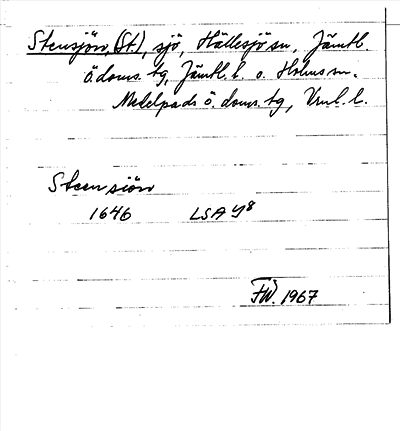 Stensjön, (St), sjö, Hällesjö sn, Jämtl.
ö. doms. tg, Jämtl. l. o. Holms sn.
Medelpads ö. doms. tg, Vnl. l.
Steensiön
1646 LSA Y8
FW. 1967